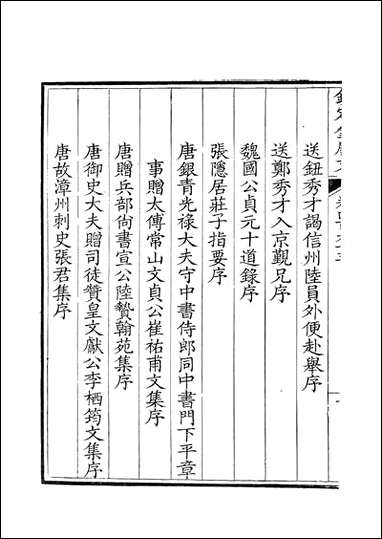 送鈕秀才謁信州陸員外便赴舉序
送鄭秀才入京覲兄序
魏國公貞元十道錄序
張隱居莊子指要序
唐銀青光祿大夫守中書侍郎同中書門下平章
事贈太傅常山文貞公崔祐甫文集序
唐贈兵部尚書宣公陸贄翰苑集序
唐御史大夫贈司徒贊皇文獻公李栖筠文集序
唐故漳州刺史張君集序